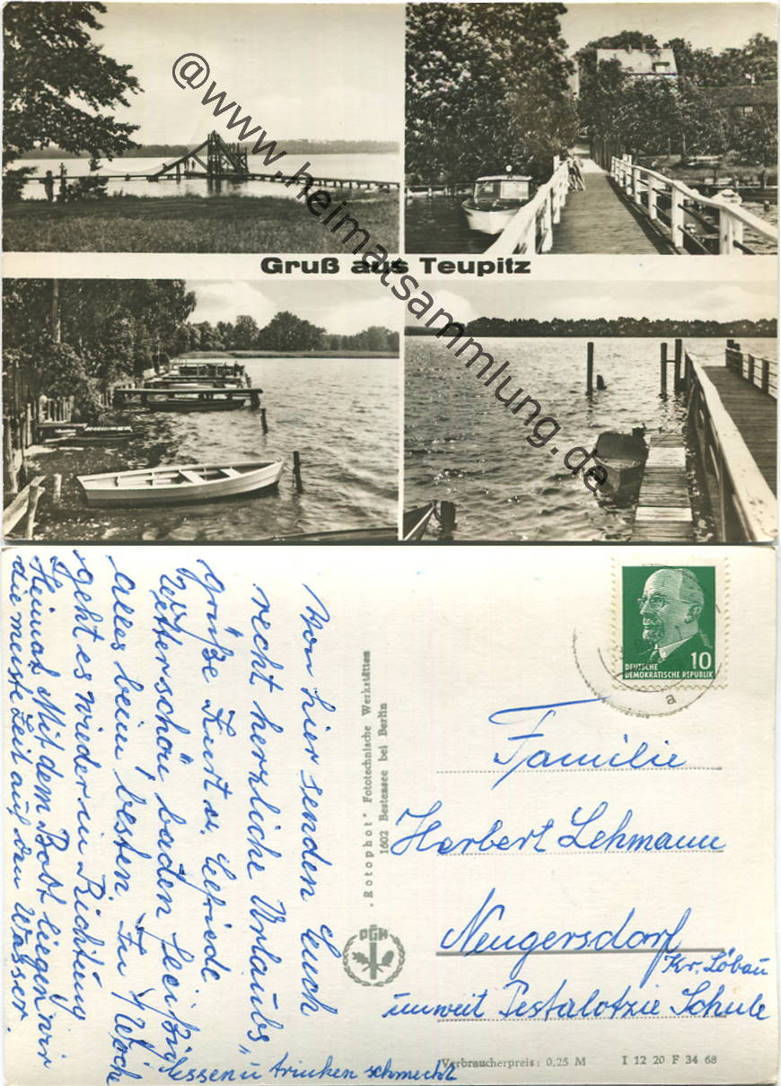 @www.heimatsammlung.de
Gruß aus Teupitz
Von hier senden Euch
recht herzliche Urlaubs„
grüße Kurt u.
Wetter schön baden
essen u trinken schmeckt
Alles beim besten. In 1 Woche
geht es wieder in Richtung
Heimat. Mit dem Boot liegen wir
die meiste Zeit auf den Wasser.
"Rotophot" Fototechnische Werkstätten
1602 Bestensee bei Berlin
PGH
10
DEUTSCHE
DEMOKRATISCHE REPUBLIK
a
Familie
Herbert Lehmann
Neugersdorf
Kr. Löbau
unweit Pestalotzie Schule
Verbraucherpreis: 0,25 M I 12 20 F 34 68